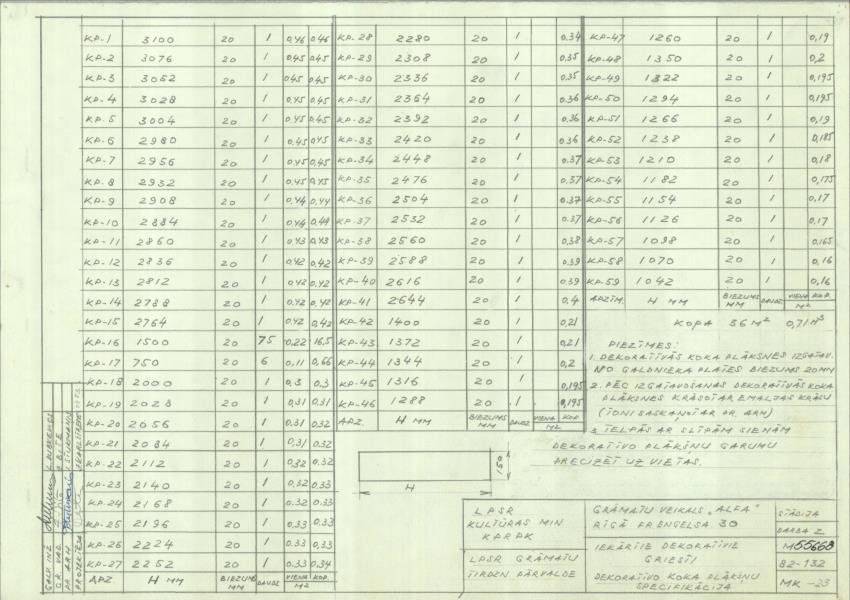 KP-1 3100 20 1 0,46 0,46
KP-2 3076 20 1 0,45 0,45
KP-3 3052 20 1 0,45 0,45
KP-4 3028 20 1 0,45 0,45
KP-5 3004 20 1 0,45 0,45
KP-6 2980 20 1 0,45 0,45
KP-7 2956 20 1 0,45 0,45
KP-8 2932 20 1 0,45 0,45
KP-9 2908 20 1 0,44 0,44
KP-10 2884 20 1 0,44 0,44
KP-11 2860 20 1 0,43 0,43
KP-12 2836 20 1 0,42 0,42
KP-13 2812 20 1 0,42 0,42
KP-14 2788 20 1 0,42 0,42
KP-15 2764 20 1 0,42 0,42
KP-16 1500 20 75 0,22 16,5
KP-17 750 20 6 0,11 0,66
KP-18 2000 20 1 0,3 0,3
KP-19 2028 20 1 0,31 0,31
KP-20 2056 20 1 0,31 0,32
KP-21 2084 20 1 0,31 0,32
KP-22 2112 20 1 0,32 0,32
KP-23 2140 20 1 0,32 0,33
KP-24 2168 20 1 0,32 0,33
KP-25 2196 20 1 0,33 0,33
KP-26 2224 20 1 0,33 0,33
KP-27 2252 20 1 0,33 0,34
APZ. H MM BIEZUMS MM DAUDZ VIENA KOP. M2
KP-28 2280 20 1 0,34
KP-29 2308 20 1 0,35
KP-30 2336 20 1 0,35
KP-31 2364 20 1 0,36
KP-32 2392 20 1 0,36
KP-33 2420 20 1 0,36
KP-34 2448 20 1 0,37
KP-35 2476 20 1 0,37
KP-36 2504 20 1 0,37
KP-37 2532 20 1 0,37
KP-38 2560 20 1 0,38
KP-39 2588 20 1 0,39
KP-40 2616 20 1 0,39
KP-41 2644 20 1 0,4
KP-42 1400 20 1 0,21
KP-43 1372 20 1 0,21
KP-44 1344 20 1 0,2
KP-45 1316 20 1 0,195
KP-46 1288 20 1 0,195
APZ. H MM BIEZUMS MM DAUDZ VIENA KOP M2
KP-47 1260 20 1 0,19
KP-48 1350 20 1 0,2
KP-49 1322 20 1 0,195
KP-50 1294 20 1 0,195
KP-51 1266 20 1 0,19
KP-52 1238 20 1 0,185
KP-53 1210 20 1 0,18
KP-54 1182 20 1 0,175
KP-55 1154 20 1 0,17
KP-56 1126 20 1 0,17
KP-57 1098 20 1 0,165
KP-58 1070 20 1 0,16
KP-59 1042 20 1 0,16
APZĪM. H MM BIEZUMS MM DAUDZ VIENA KOP. M2
KOPA 36 M2 0,71 M3
PIEZĪMES:
1. DEKORATĪVĀS KOKA PLĀKSNES IZGATAV.
NO GALDNIEKA PLATES BIEZUMS 20MM
2. PĒC IZGATAVOŠANAS DEKORATĪVĀS KOKA
PLĀKSNES KRĀSOT AR EMALJAS KRĀSU
(TONI SASKAŅOT AR PR. ARH)
3. TELPĀS AR SLĪPĀM SIENĀM
DEKORATĪVO PLĀKŠŅU GARUMU
PRECIZĒT UZ VIETAS.
150
H
LPSR
KULTŪRAS MIN
KPRPK
LPSR GRĀMATU
TIRDZN PĀRVALDE
GRĀMATU VEIKALS "ALFA"
RĪGĀ FR.ENGELSA 30
IEKĀRTIE DEKORATĪVIE
GRIESTI
DEKORATĪVO KOKA PLĀKŠŅU
SPECIFIKĀCIJA
STADIJA
DARBA Z
M55668
82-132
MK-23
GALV. INŽ
GR. VAD.
PR. ARH.
PROJEKTĒJA